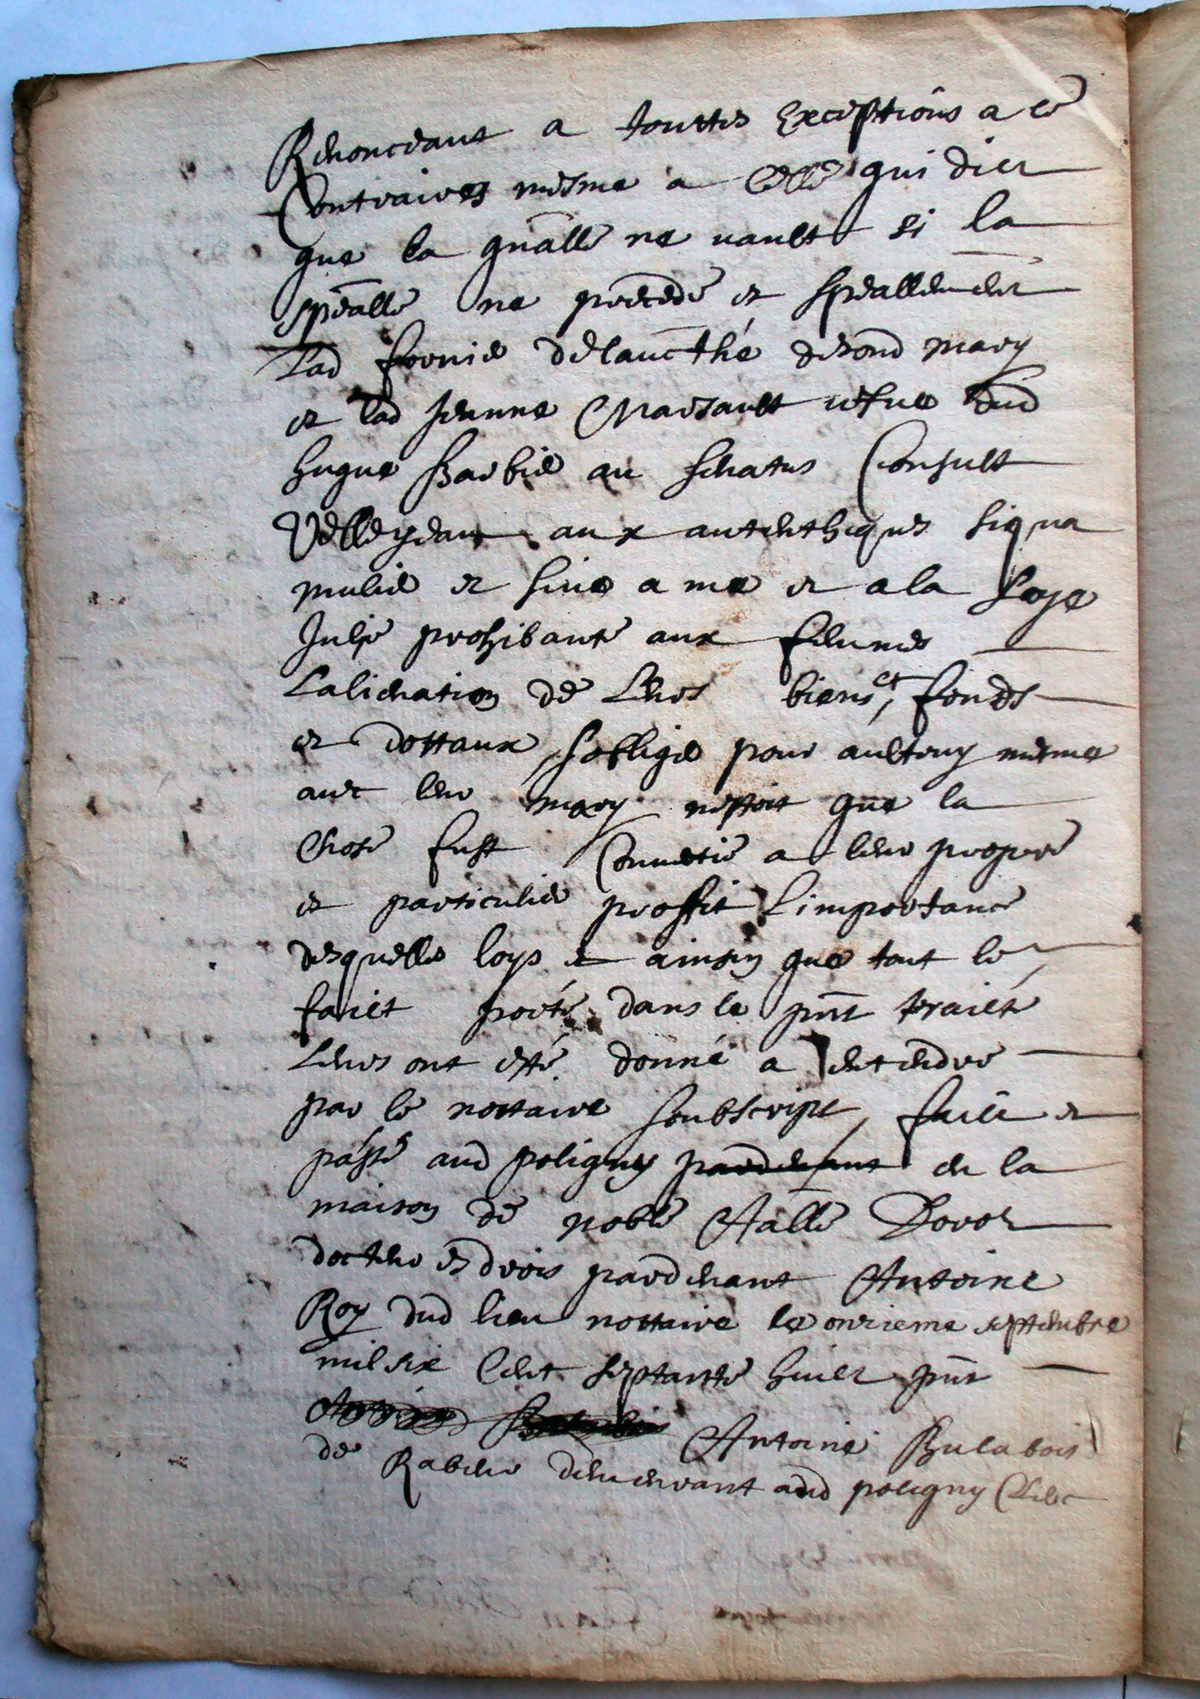 Renonceant a touttes exceptiõs a ce
Contraires mesme a celle qui dict
que la gñalle ne vault si la
spẽalle ne precede et spẽallem̃ent
Lad
et lad Jeanne vefve dud
hugue Barbier au senatus Consult
Velleyean aux autenthiques siqua
mulier et sive a me et a la Loye
Julie prohibante aux femmes
Lalienation de Leurs biens et fonds
et dottaux sobliger pour aultruy mesme
avec leur mary nestoit que la
chose fust Convertie a leur propre
et particulier proffit Limportance
desquelles loys et ainsin que tout le
faict porté dans le pñt traicté
Leurs ont esté donné a entendre
par le nottaire soubscript, faict et
passé aud poligny pardevant en la
maison de noble
docteur es drois pardevant Antoine
Roy dud lieu nottaire le onzieme septembre
mil six Cent septante huict pñt
Antoine Bulabois
de demeurant aud poligny Clerc